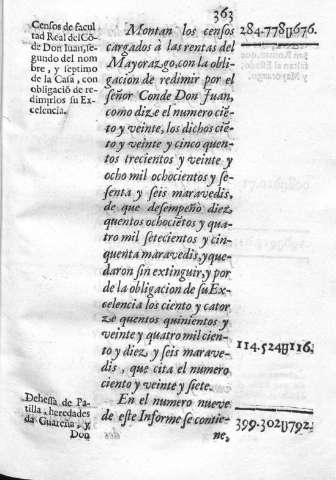 363
Censos de facul
tad Real del Cõ-
de Don Iuan, se-
gundo del nom
bre, y septimo
de la Casa, con
obligació de re-
dimirlos su Ex-
celencia.
Montan los censos
cargados à las rentas del
Mayorazgo, con la obli-
gacion de redimir por el
señor Conde Don Juan,
como dize el numero ciē-
to y veinte, los dichos ciē-
to y veinte y cinco quen-
tos trecientos y veinte y
ocho mil ochocientos y se-
senta y seis maravedis,
de que desempeñò diez
quentos ochociētos y qua-
tro mil setecientos y cin-
quenta maravedis, y que-
daron sin extinguir, y por
de la obligacion de su Ex-
celencia los ciento y cator
ze quentos quinientos y
veinte y quatro mil cien-
to y diez y seis marave-
dis, que cita el numero
ciento y veinte y siete.
284.778U676.
114.524U116.
Dehessa de Pa-
tilla, heredades
da Guareña, y
Don
En el numero nueve
de este Informe se contie-
ne,
399.302U792.